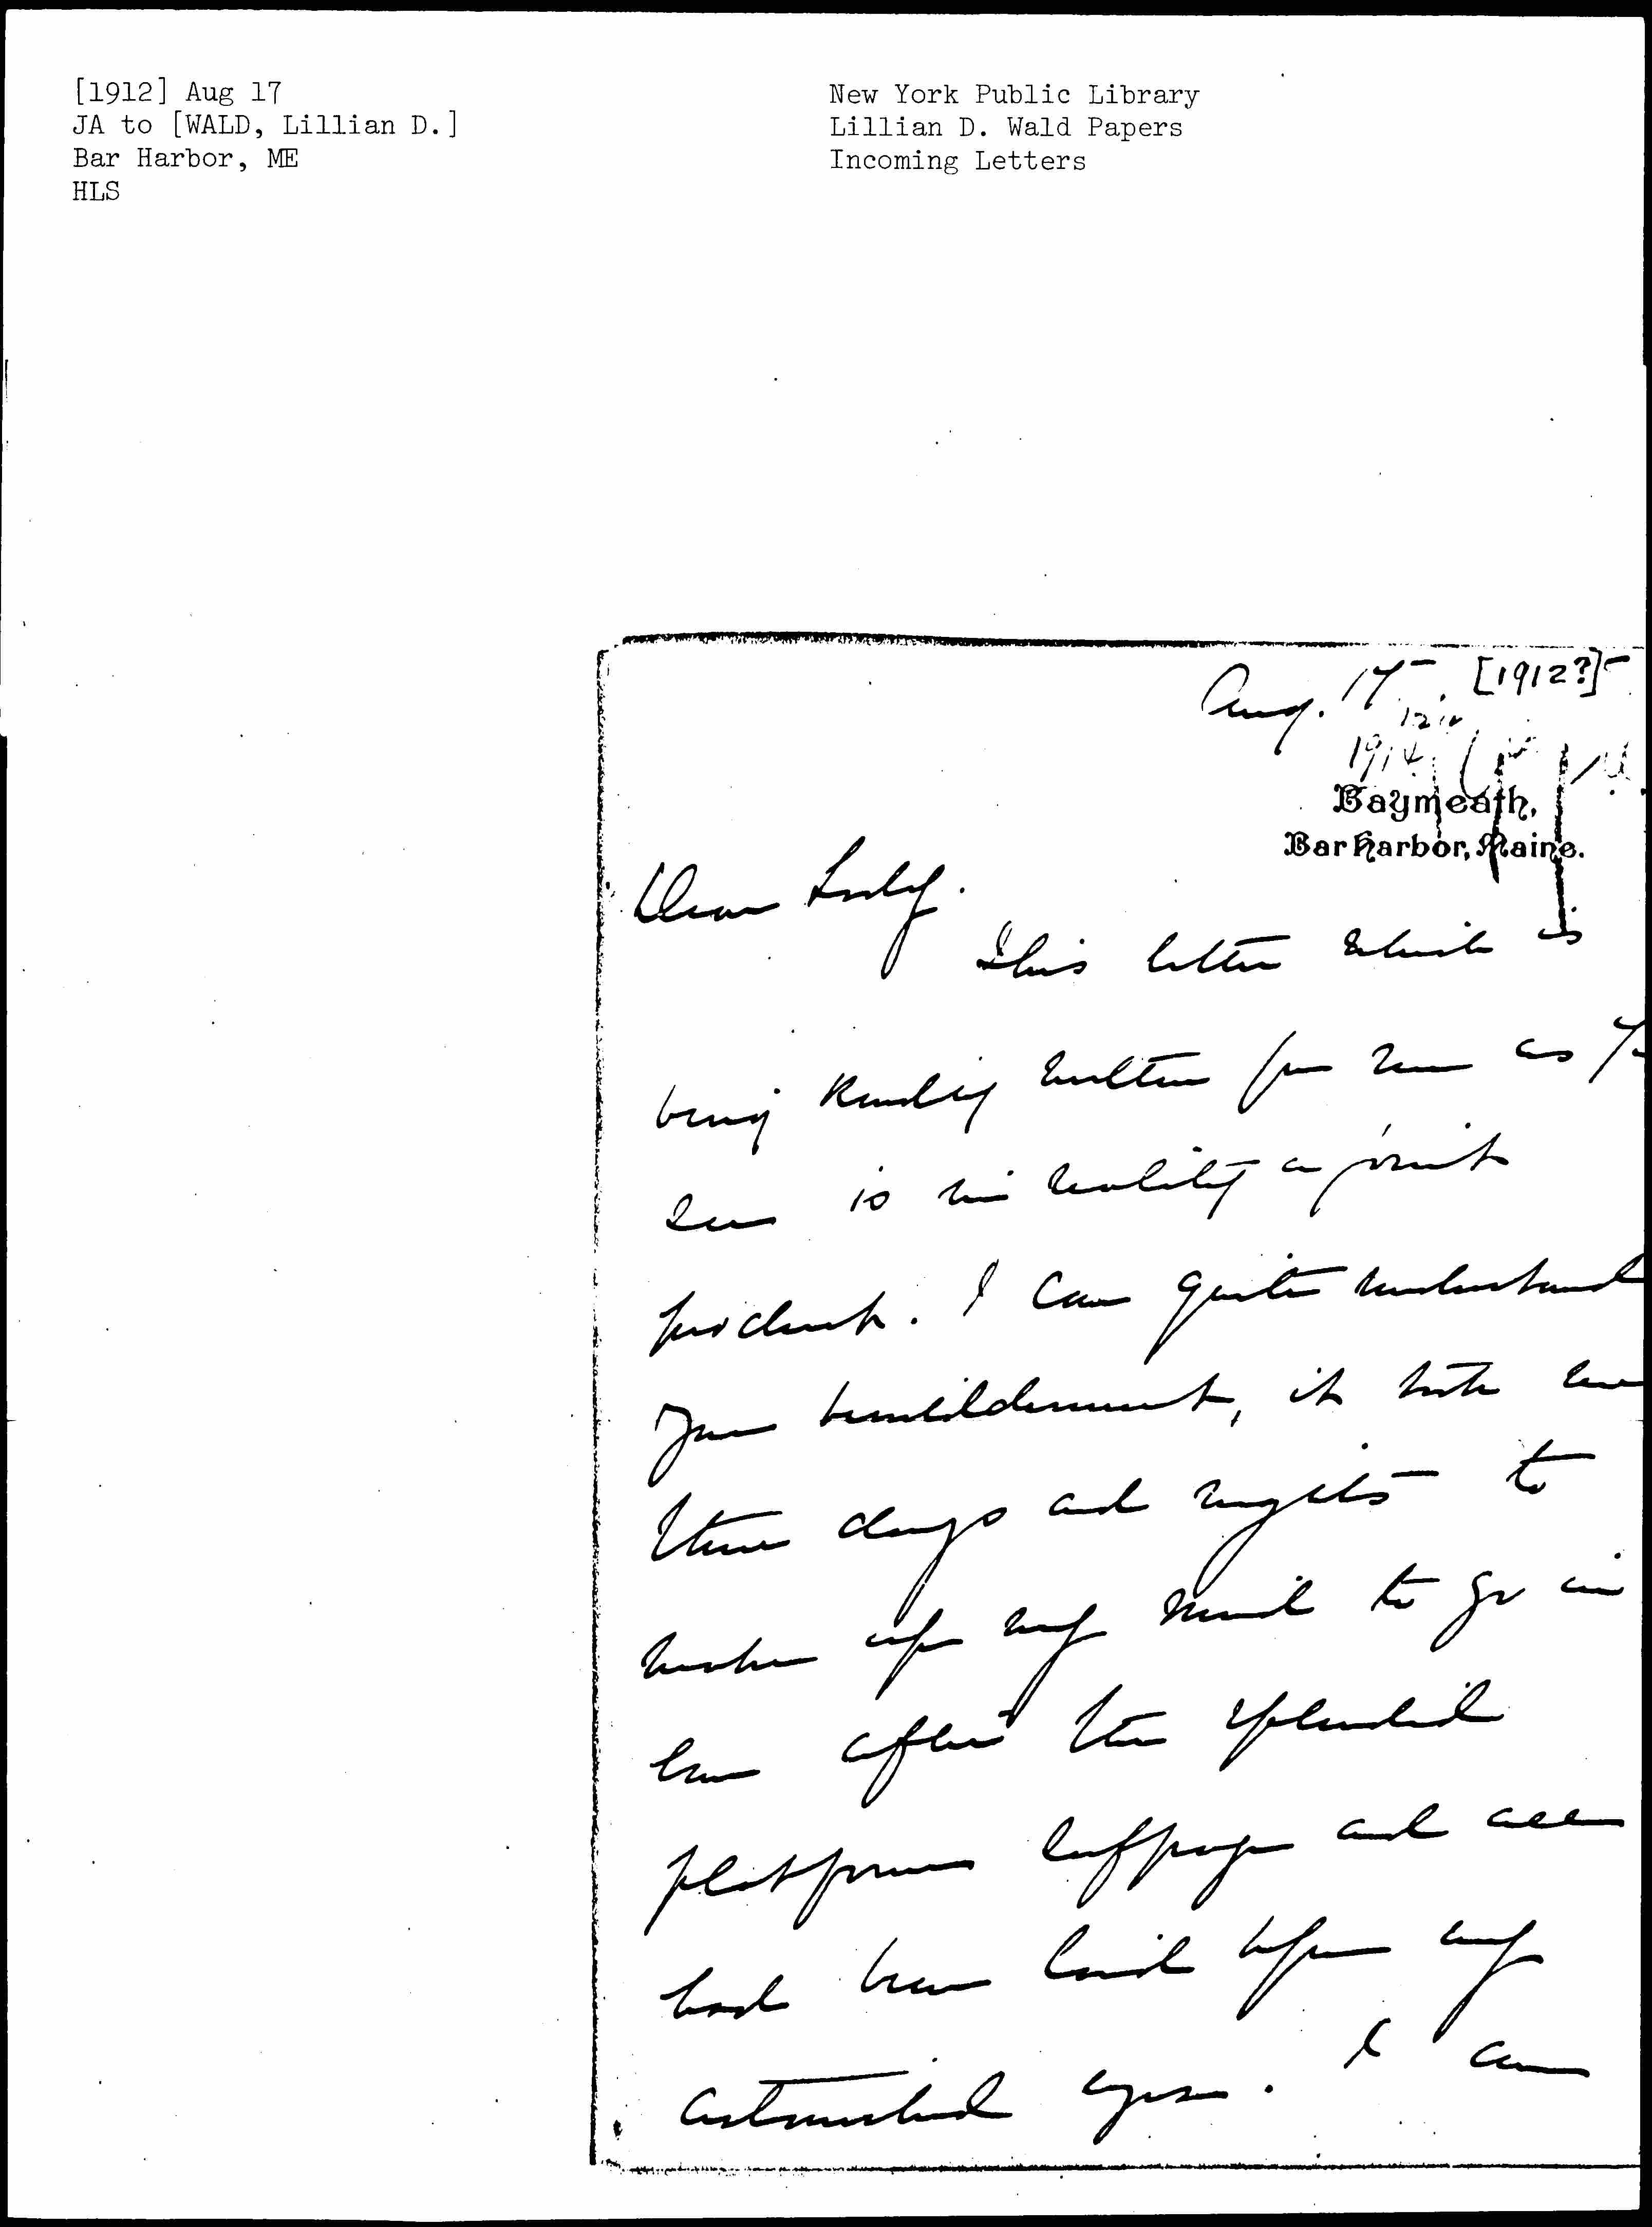 [1912] Aug 17
JA to [WALD, Lillian D.]
Bar Harbor, ME
HLS
New York Public Library
Lillian D. Wald Papers
Incoming Letters
Aug. 17 [1912?]
1914
Baymeath,
Bar Harbor, Maine.
Dear Lady.
This letter which is
being kindly written for me as
see is in reality a joint
product. I can quite understand
your bewilderment, it took me
three days and nights to
make up my mind to go in
even after the splendid
platform suffrage and all
had been laid before my
astonished eyes. I am